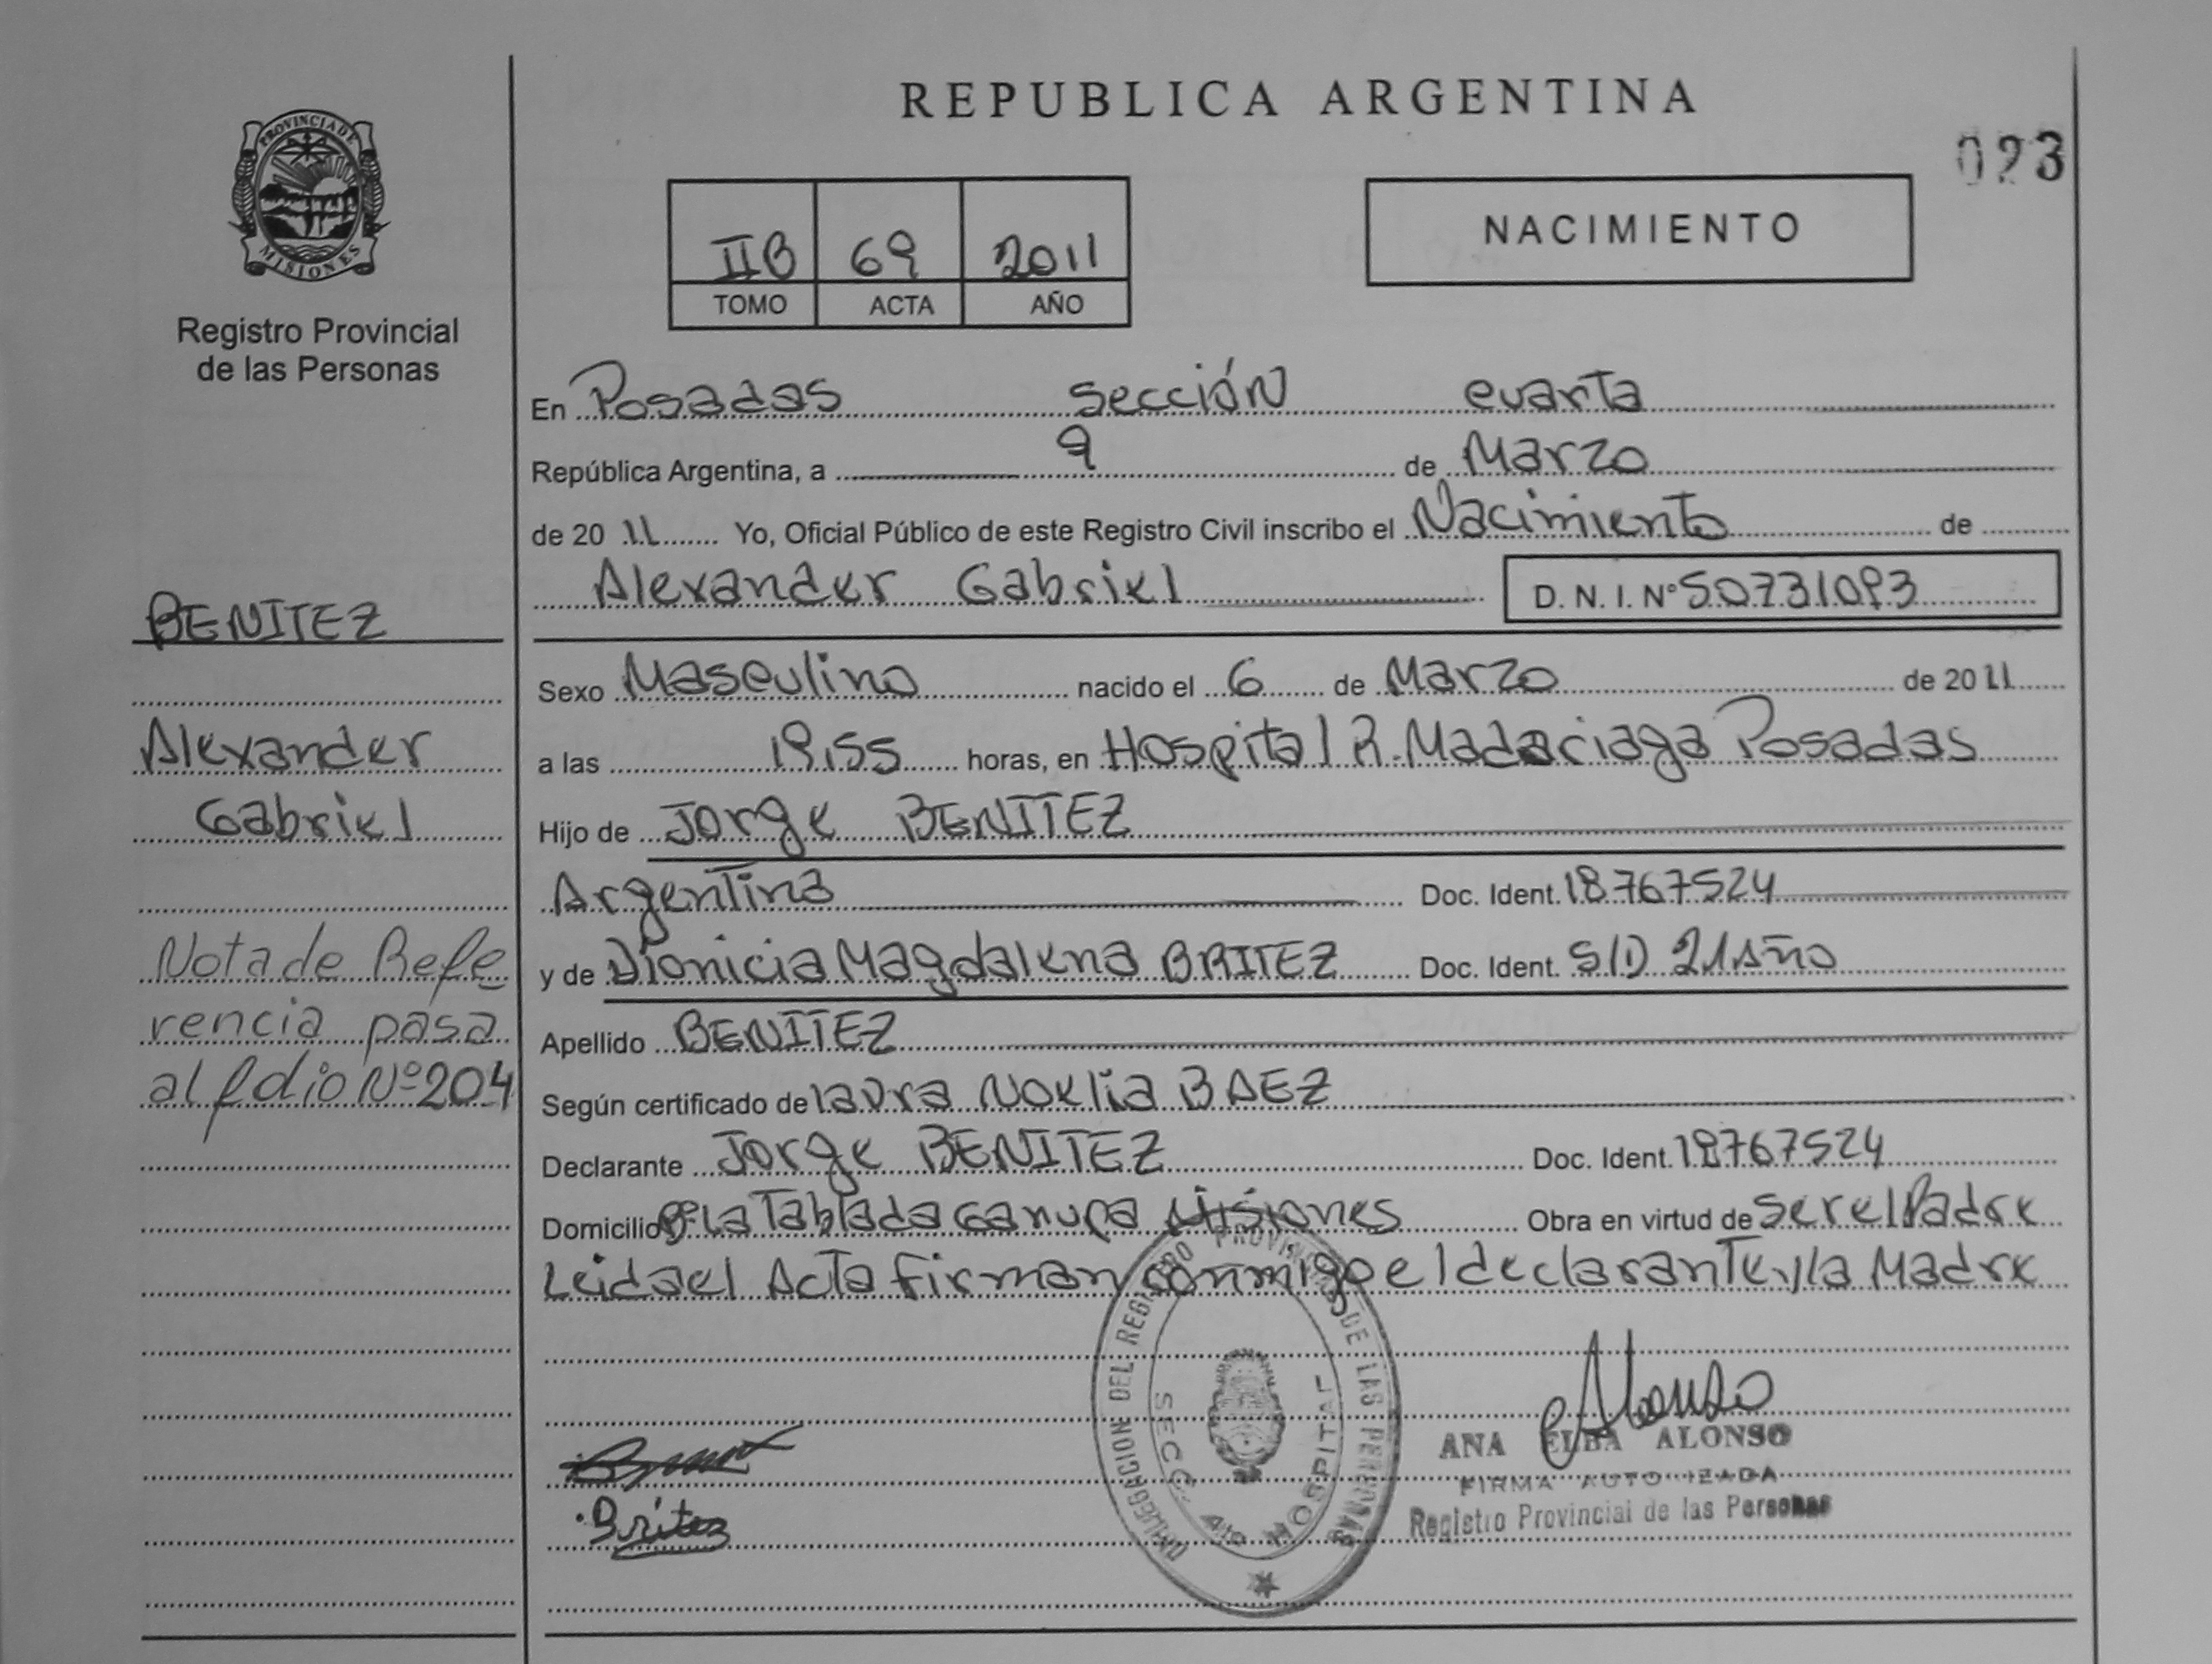 REPUBLICA ARGENTINA
023
PROVINCIA DE
MISIONES
Registro Provincial
de las Personas
IIB 69 2011
TOMO ACTA AÑO
NACIMIENTO
En Posadas sección cuarta
República Argentina, a 9 de Marzo
de 20 11 Yo, Oficial Público de este Registro Civil inscribo el Nacimiento de
Alexander Gabriel D. N. I. Nº 50731093
BENITEZ
Alexander
Gabriel
Nota de Refe
rencia pasa
al folio Nº 204
Sexo Masculino nacido el 6 de Marzo de 20 11
a las 19,55 horas, en Hospital R. Madariaga Posadas
Hijo de Jorge BENITEZ
Argentina Doc. Ident. 18767524
y de Dionicia Magdalena BRITEZ Doc. Ident. S/D 21 Año
Apellido BENITEZ
Según certificado de Laura Noelia BAEZ
Declarante Jorge BENITEZ Doc. Ident. 18767524
Domicilio Bº La Tablada Garupa Misiones Obra en virtud de ser el Padre
Leida el Acta firman conmigo el declarante y la Madre
REGISTRO PROVINCIAL DE LAS PERSONAS
SECC. 4ta HOSPITAL
Alonso
ANA ELBA ALONSO
FIRMA AUTORIZADA
Registro Provincial de las Personas
Britez